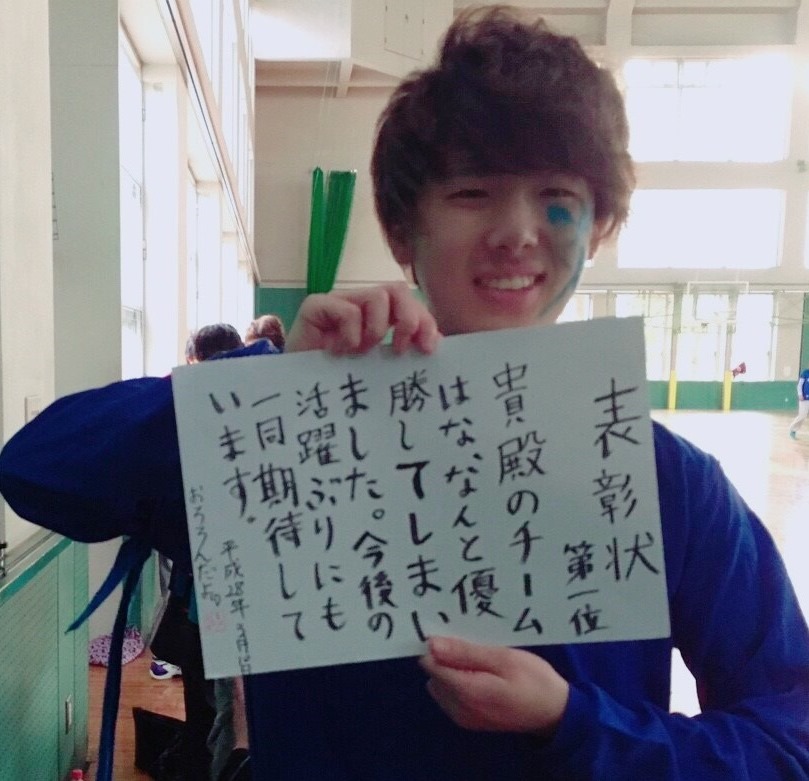 表彰状
第一位
貴殿のチーム
はな、なんと優
勝してしまい
ました。今後の
活躍ぶりにも
一同期待して
います。
平成28年3月1日
おろろんだよ